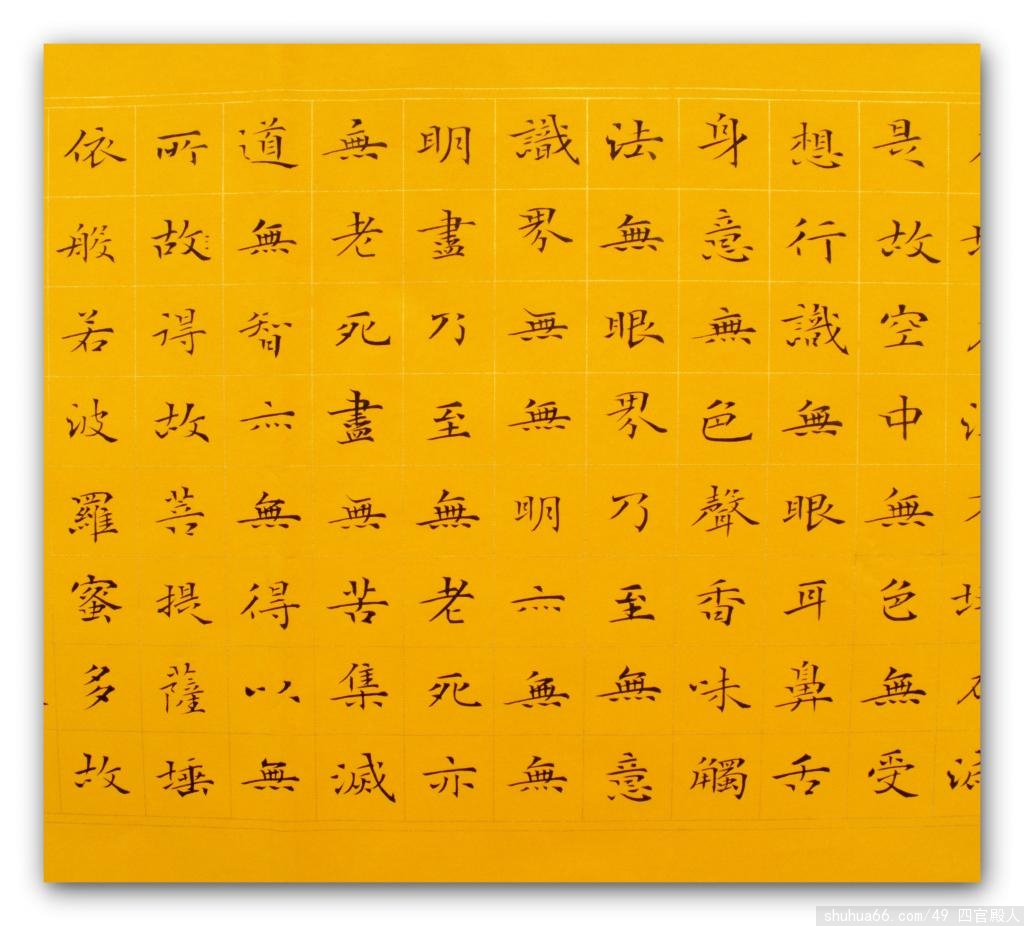 是故空中無色無受
想行識無眼耳鼻舌
身意無色聲香味觸
法無眼界乃至無意
識界無無明亦無無
明盡乃至無老死亦
無老死盡無苦集滅
道無智亦無得以無
所故得故菩提薩埵
依般若波羅蜜多故
shuhua66.com/49 四官殿人